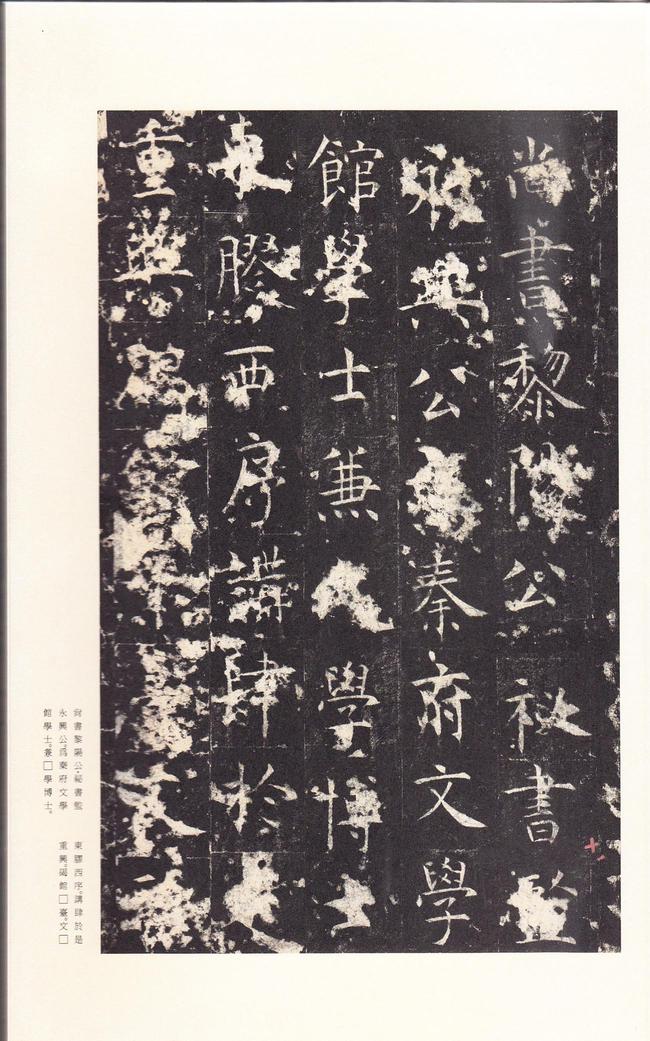 尚書黎陽公祕書監
永興公爲秦府文學
館學士兼學博士
東膠西序講肆於是
重興碣館臺文
尙書黎陽公。祕書監
永興公。爲秦府文學
館學士。兼□學博士。
東膠西序。講肆於是
重興。碣館□臺。文□